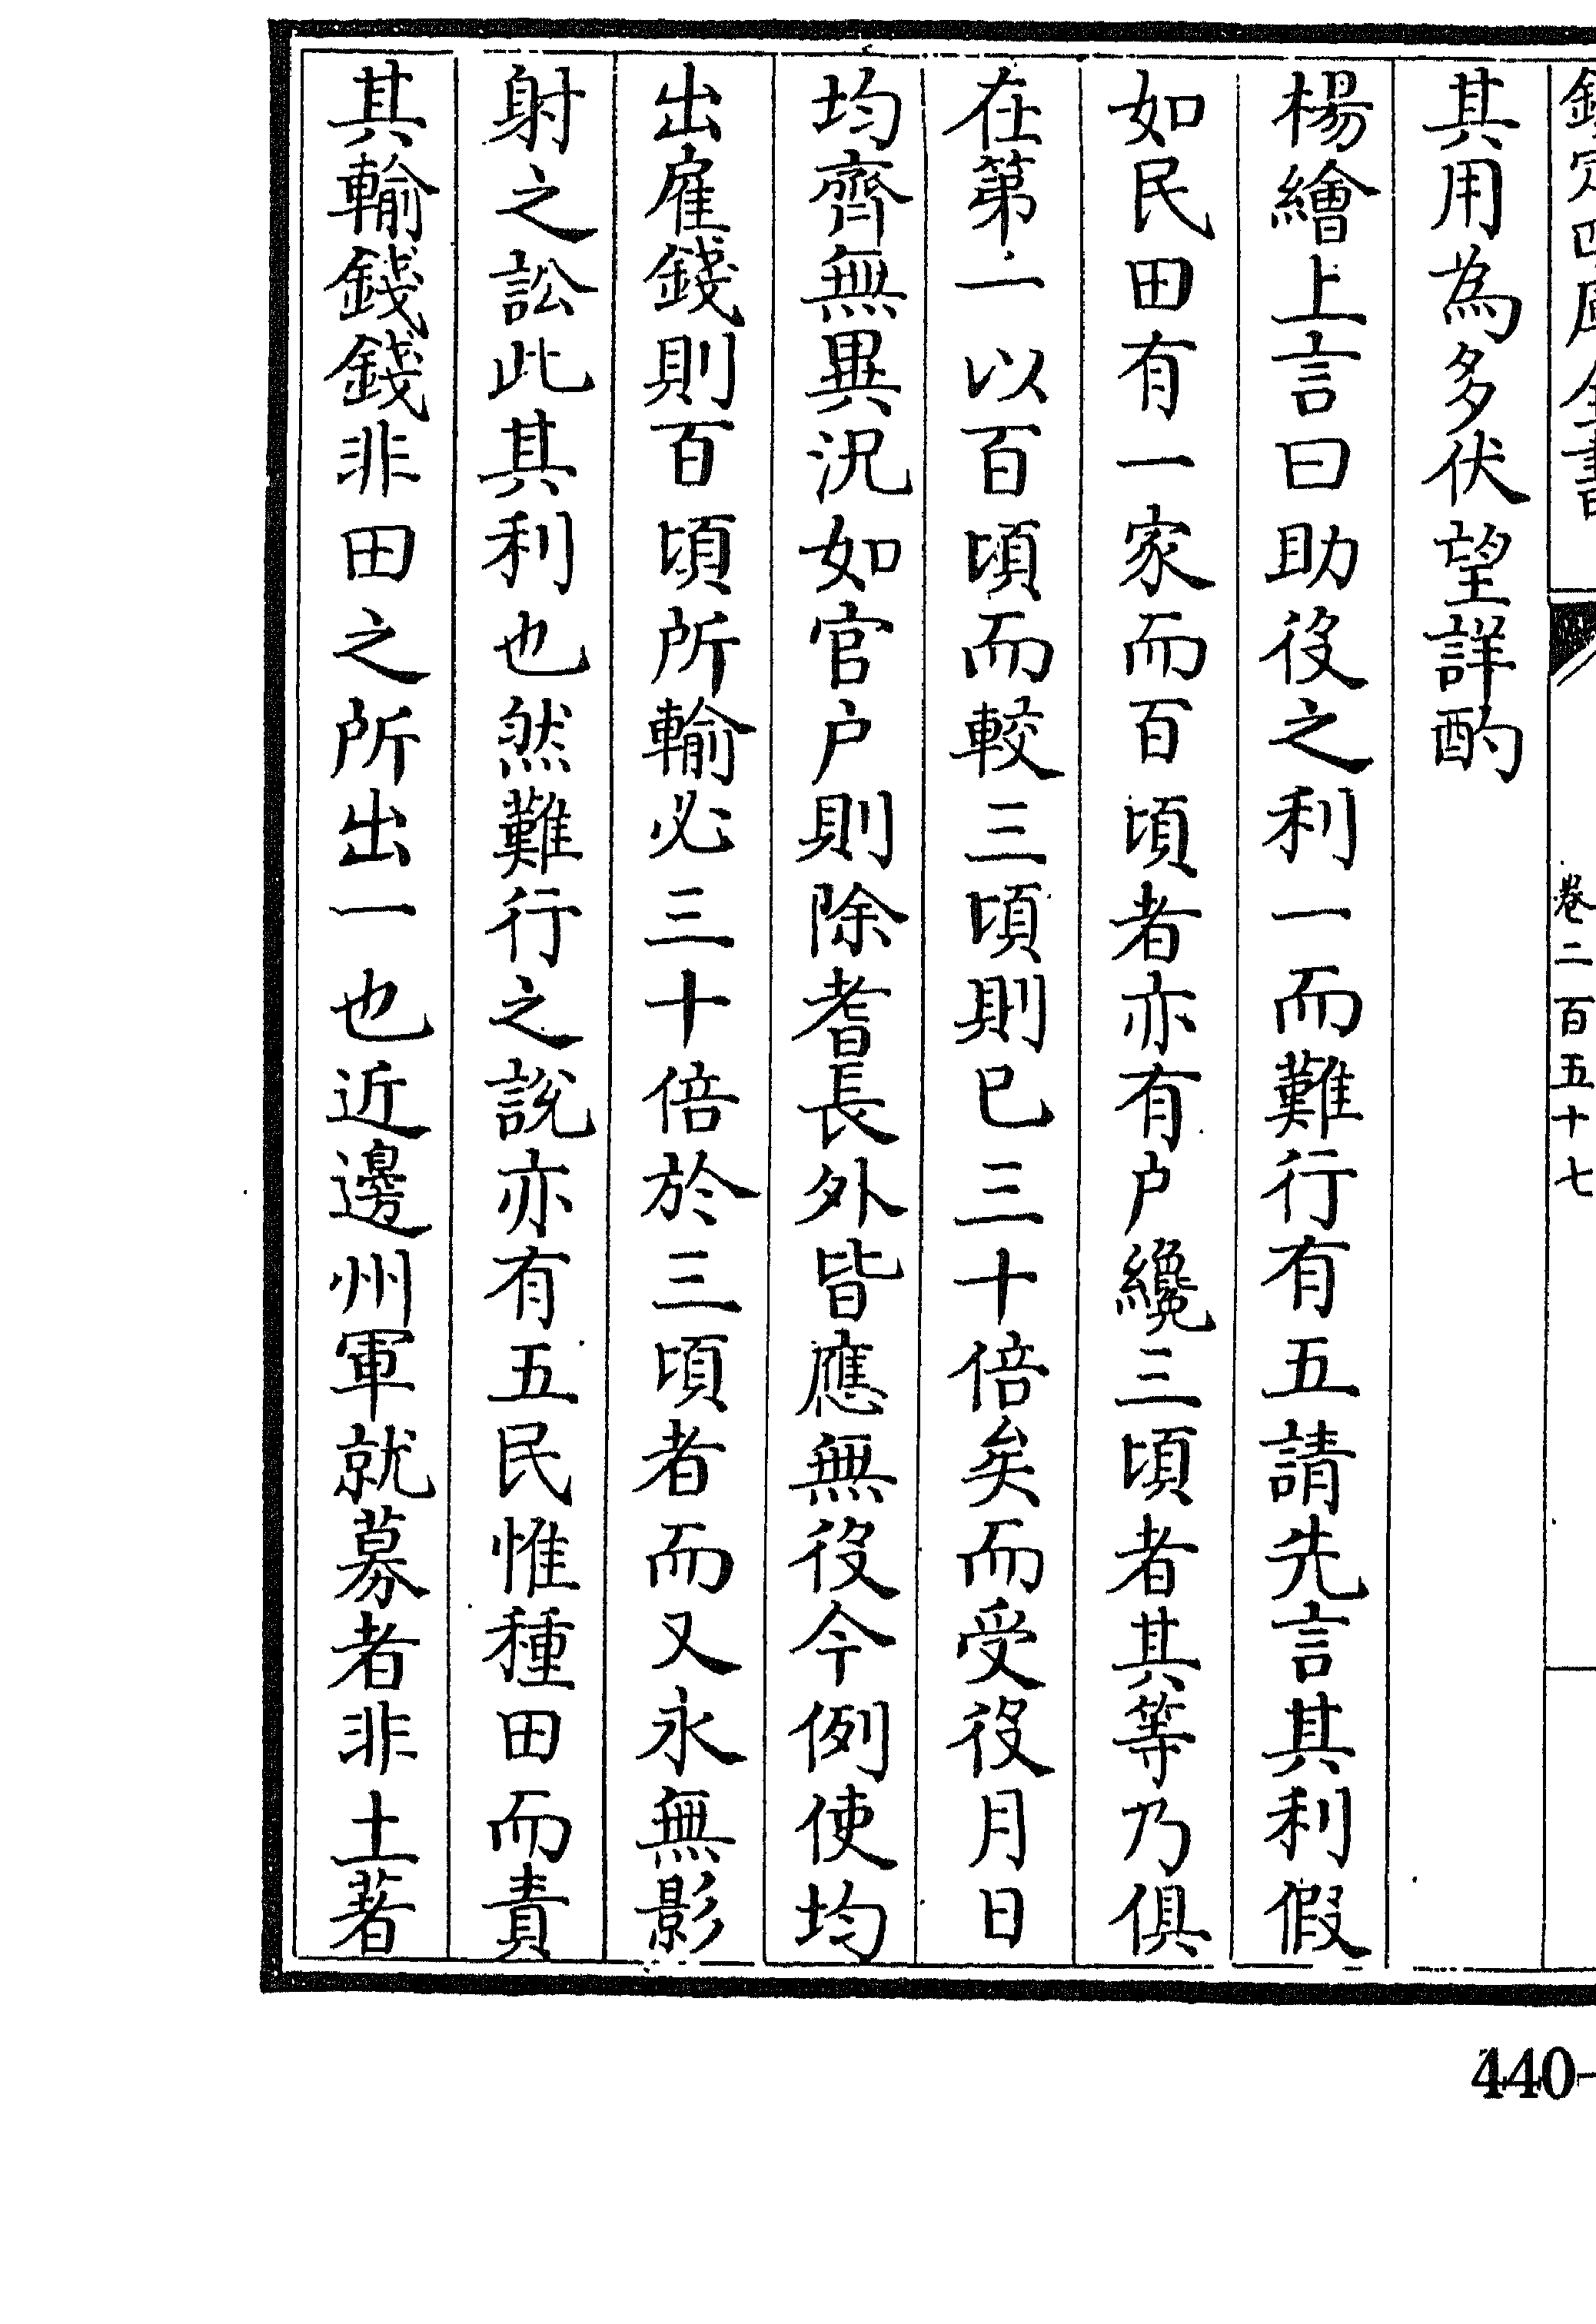 欽定四庫全書 卷二百五十七
其用為多伏望詳酌
楊繪上言曰助役之利一而難行有五請先言其利假
如民田有一家而百頃者亦有户纔三頃者其等乃俱
在第一以百頃而較三頃則已三十倍矣而受役月日
均齊無異況如官户則除耆長外皆應無役今例使均
出雇錢則百頃所輸必三十倍於三頃者而又永無影
射之訟此其利也然難行之說亦有五民惟種田而責
其輸錢錢非田之所出一也近邊州軍就募者非土著
440-